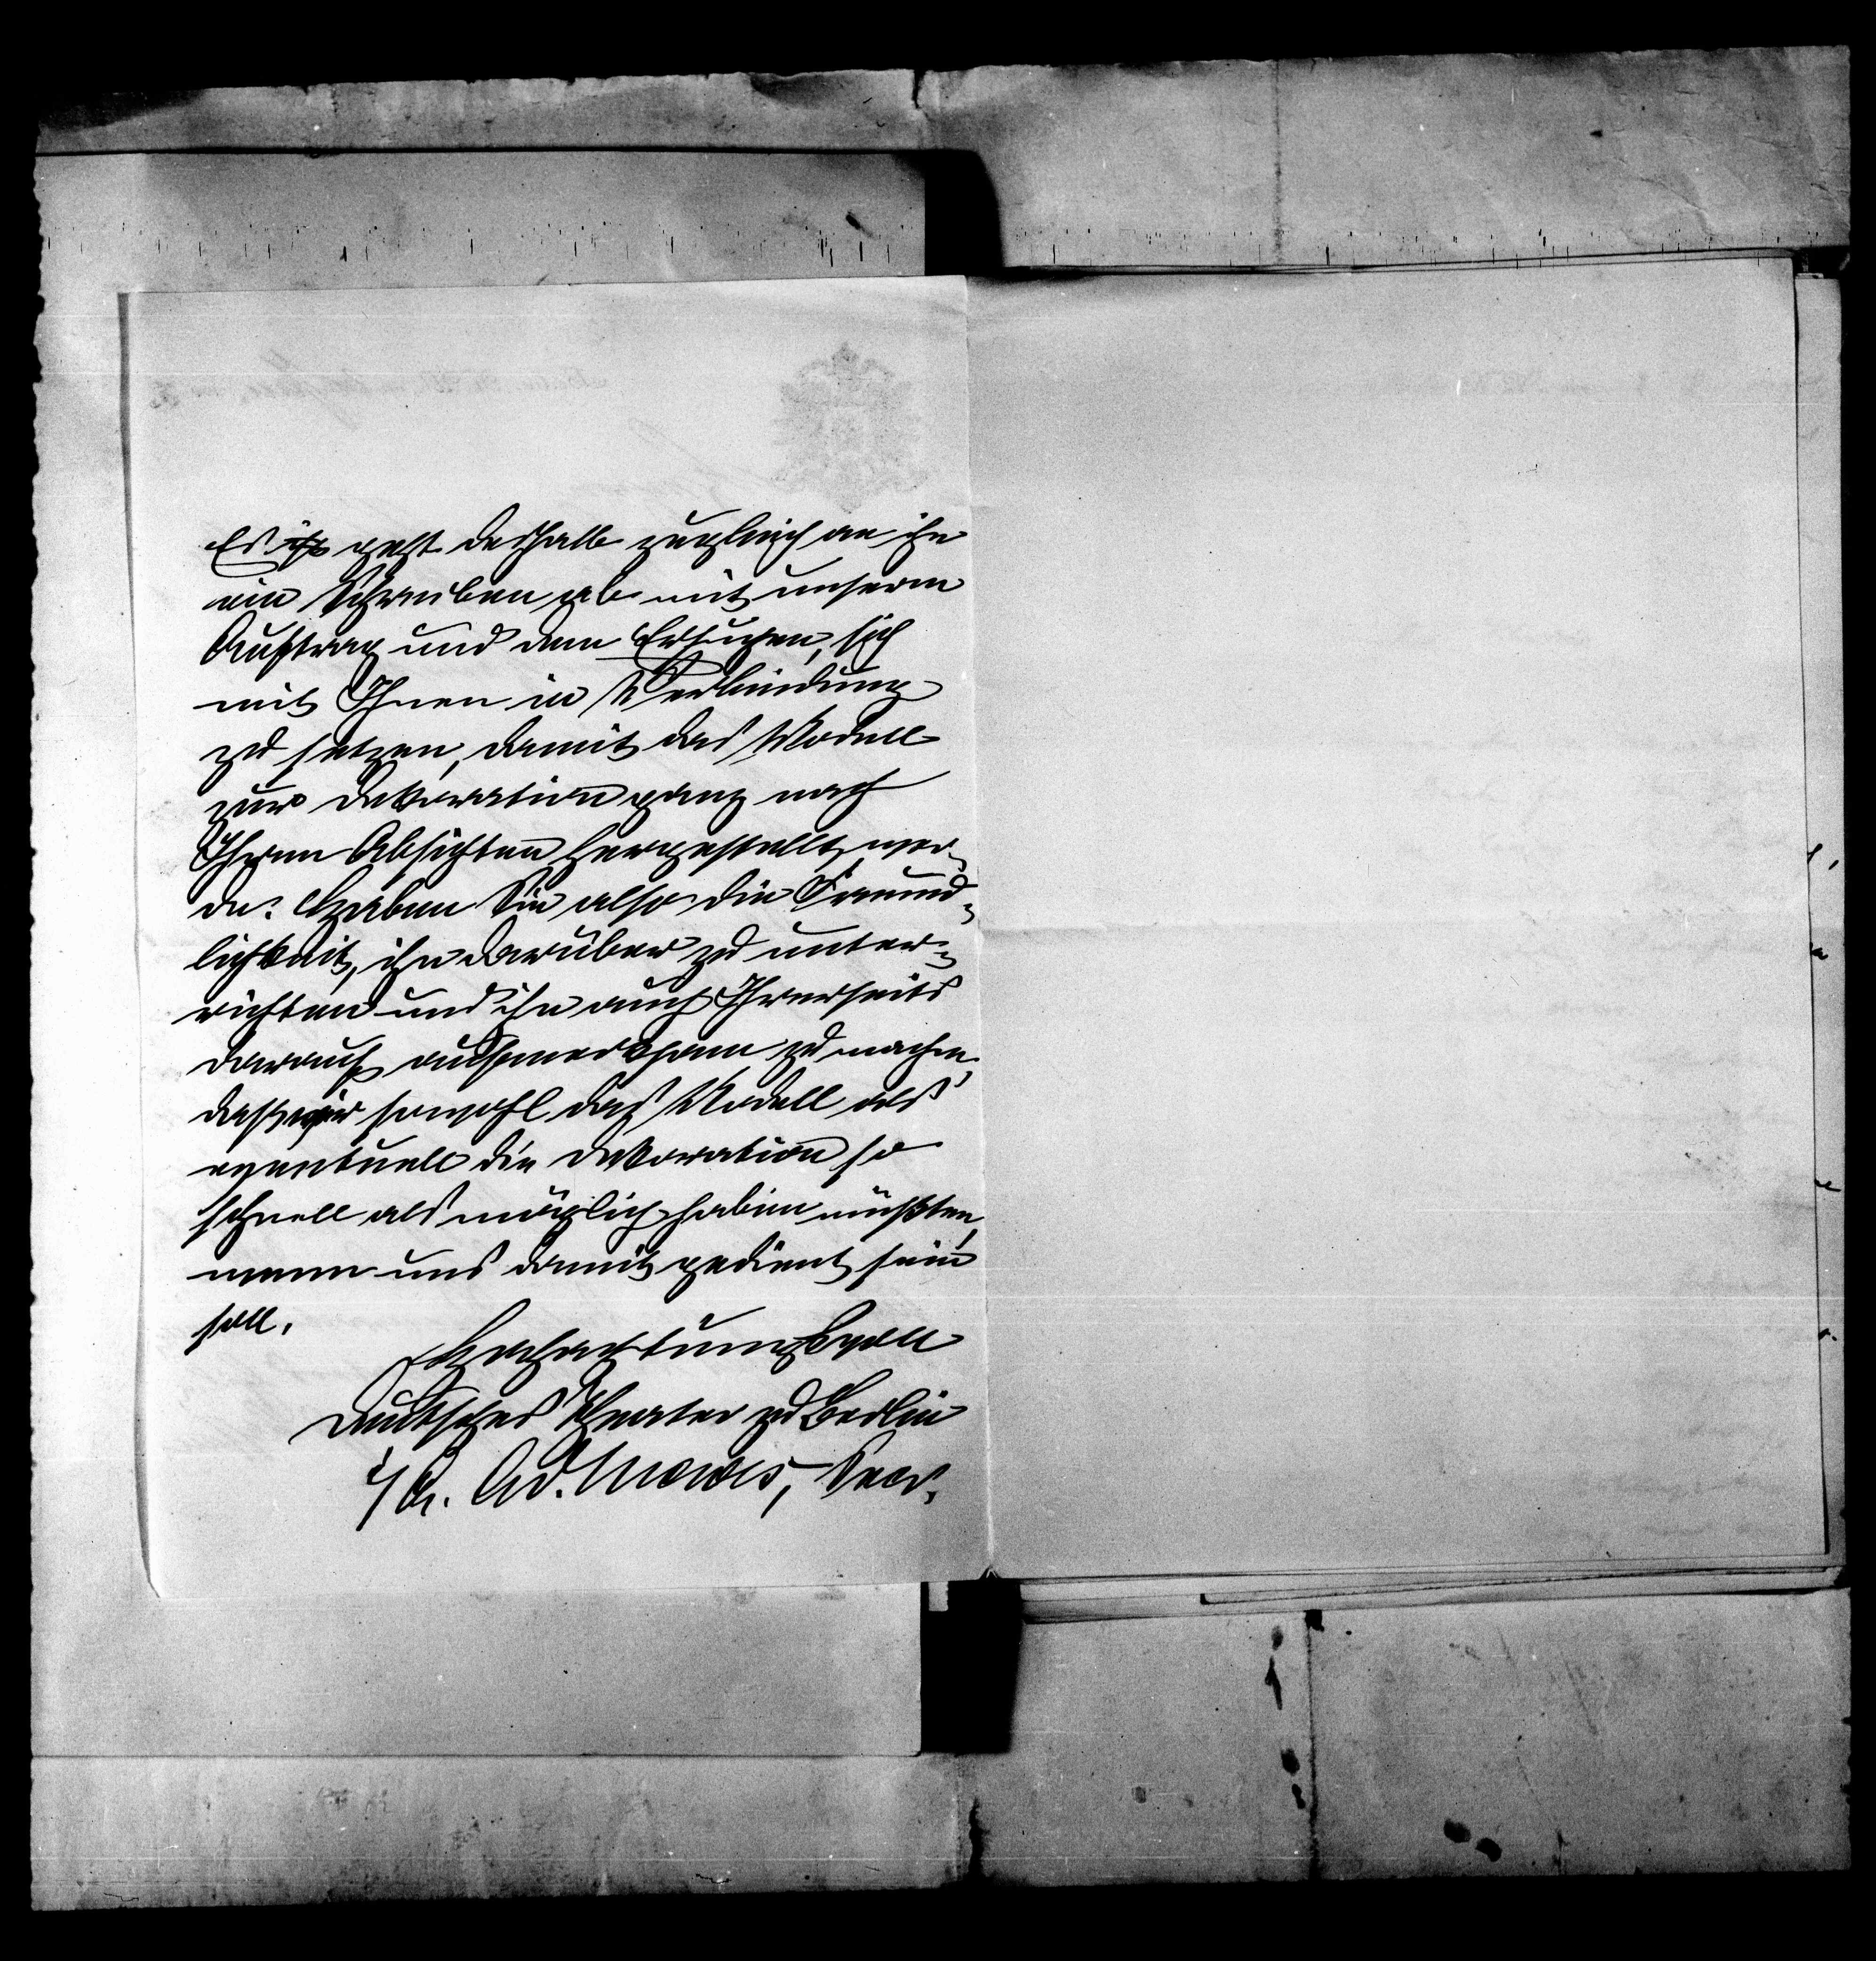 Es geht deshalb zugleich an ihn
ein Schreiben ab mit unserm
Auftrag und dem Ersuchen, sich
mit Ihnen in Verbindung
zu setzen, damit das Modell
zur Dekoration ganz nach
Ihren Absichten hergestellt wer-
de. Haben Sie also die Freund-
lichkeit, ihn darüber zu unter-
richten und ihn auch Ihrerseits
darauf aufmerksam zu machen,
daß wir sowohl das Modell als
eventuell die Dekoration so
schnell als möglich haben müßten,
wenn uns damit gedient sein
soll.
Hochachtungsvoll
Deutsches Theater zu Berlin
i/A. Ad. Secr.